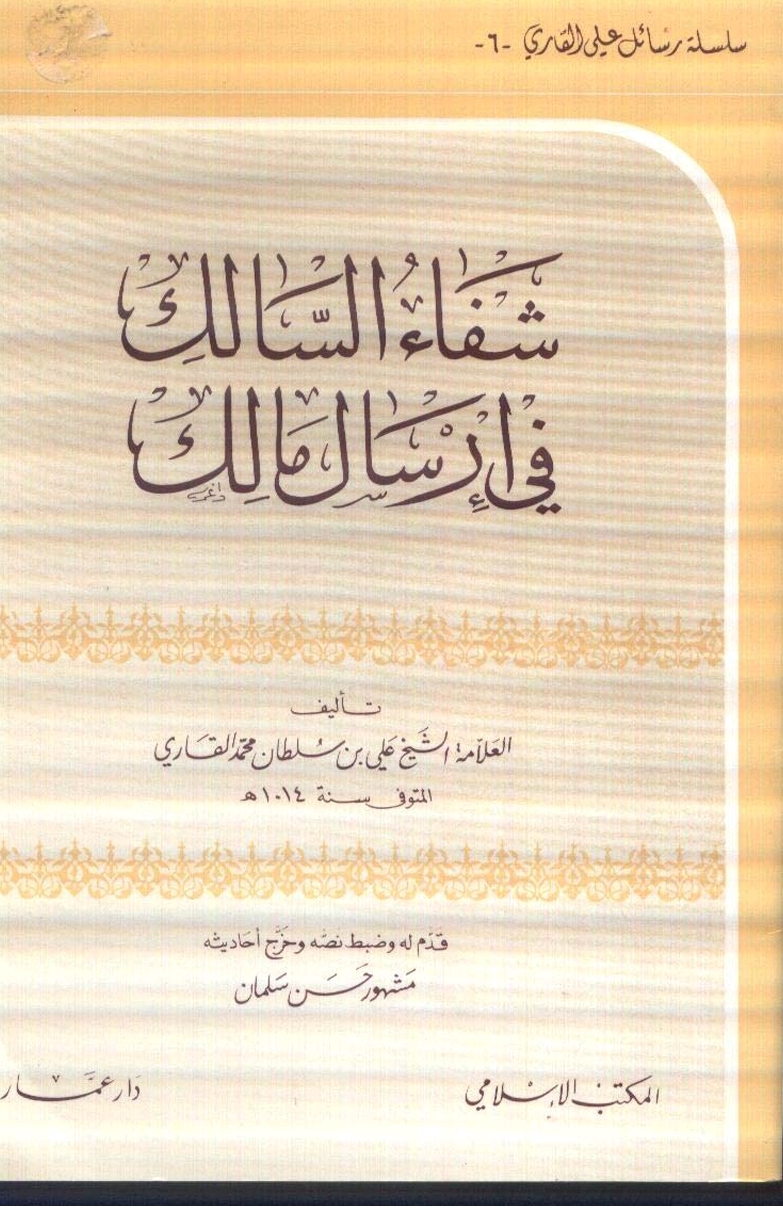 سلسلة رسائل علي القاري -٦-
شفاء السالك
في إرسال مالك
تأليف
العلامة الشيخ علي بن سلطان محمد القاري
المتوفى سنة ١٠١٤ ه
قدم له وضبط نصه وخرج أحاديثه
مشهور حسن سلمان
المكتب الإسلامي
دار عمار